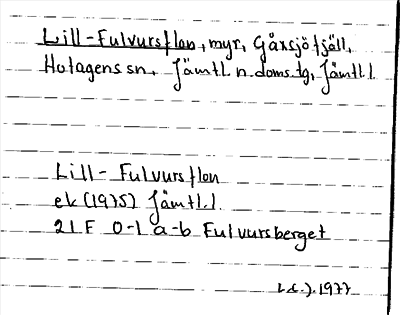 Lill-Fulvursflon, myr, Gåxsjö fjäll,
Hotagens sn. Jämtl. n. doms. tg, Jämtl. l.
Lill-Fulvursflon
ek (1975) Jämtl. l.
21 F 0-1 a-b Fulvursberget
1977